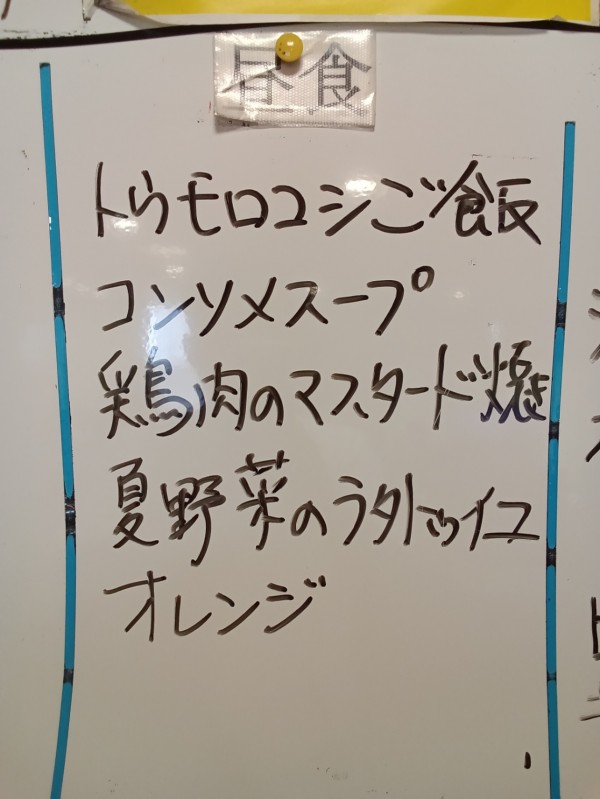 昼食
トウモロコシご飯
コンソメスープ
鶏肉のマスタード焼き
夏野菜のラタトゥイユ
オレンジ